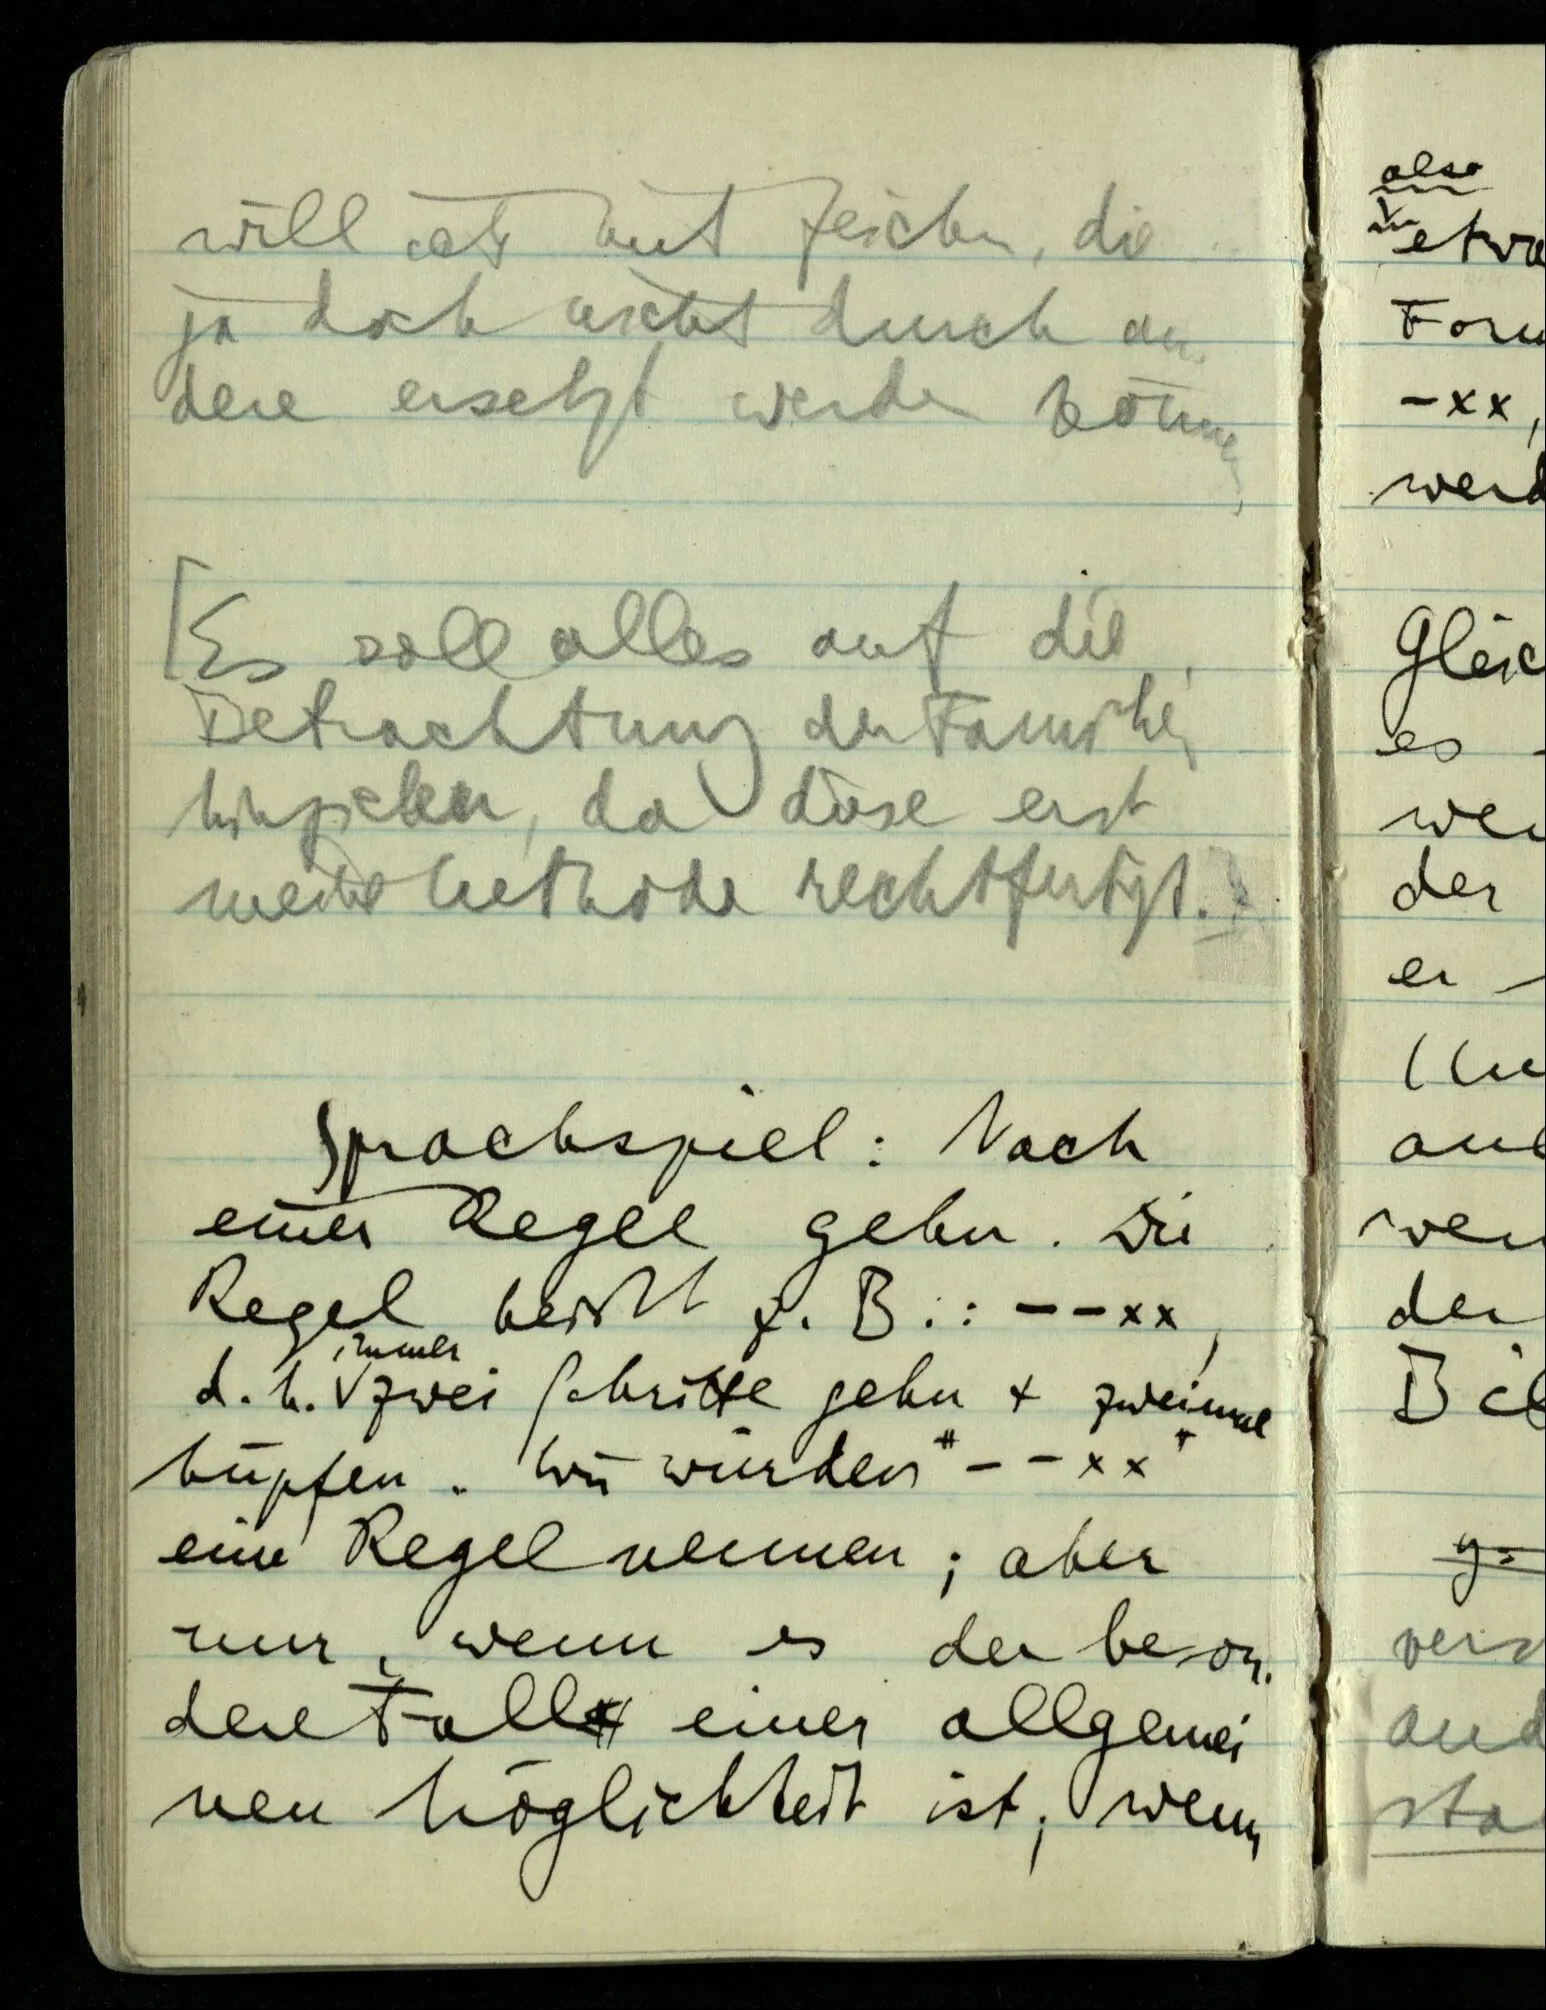 will ich mit Zeichen, die
ja doch nicht durch an-
dere ersetzt werden können,
[Es soll alles auf die
Betrachtung der Familien
hinzielen, da diese erst
meine Methode rechtfertigt.]
Sprachspiel: Nach
einer Regel gehn. Die
Regel heißt z. B.: – – x x,
immer
d. h. zwei Schritte gehn + zweimal
hüpfen. Wir würden "– – x x"
eine Regel nennen; aber
nur, wenn es der beson-
dere Fall einer allgemei
nen Möglichkeit ist; wenn
also
etwa
Form
– x x,
werd
Gleic
es
wen
der
er
auf
wen
der
Bil
vers
and